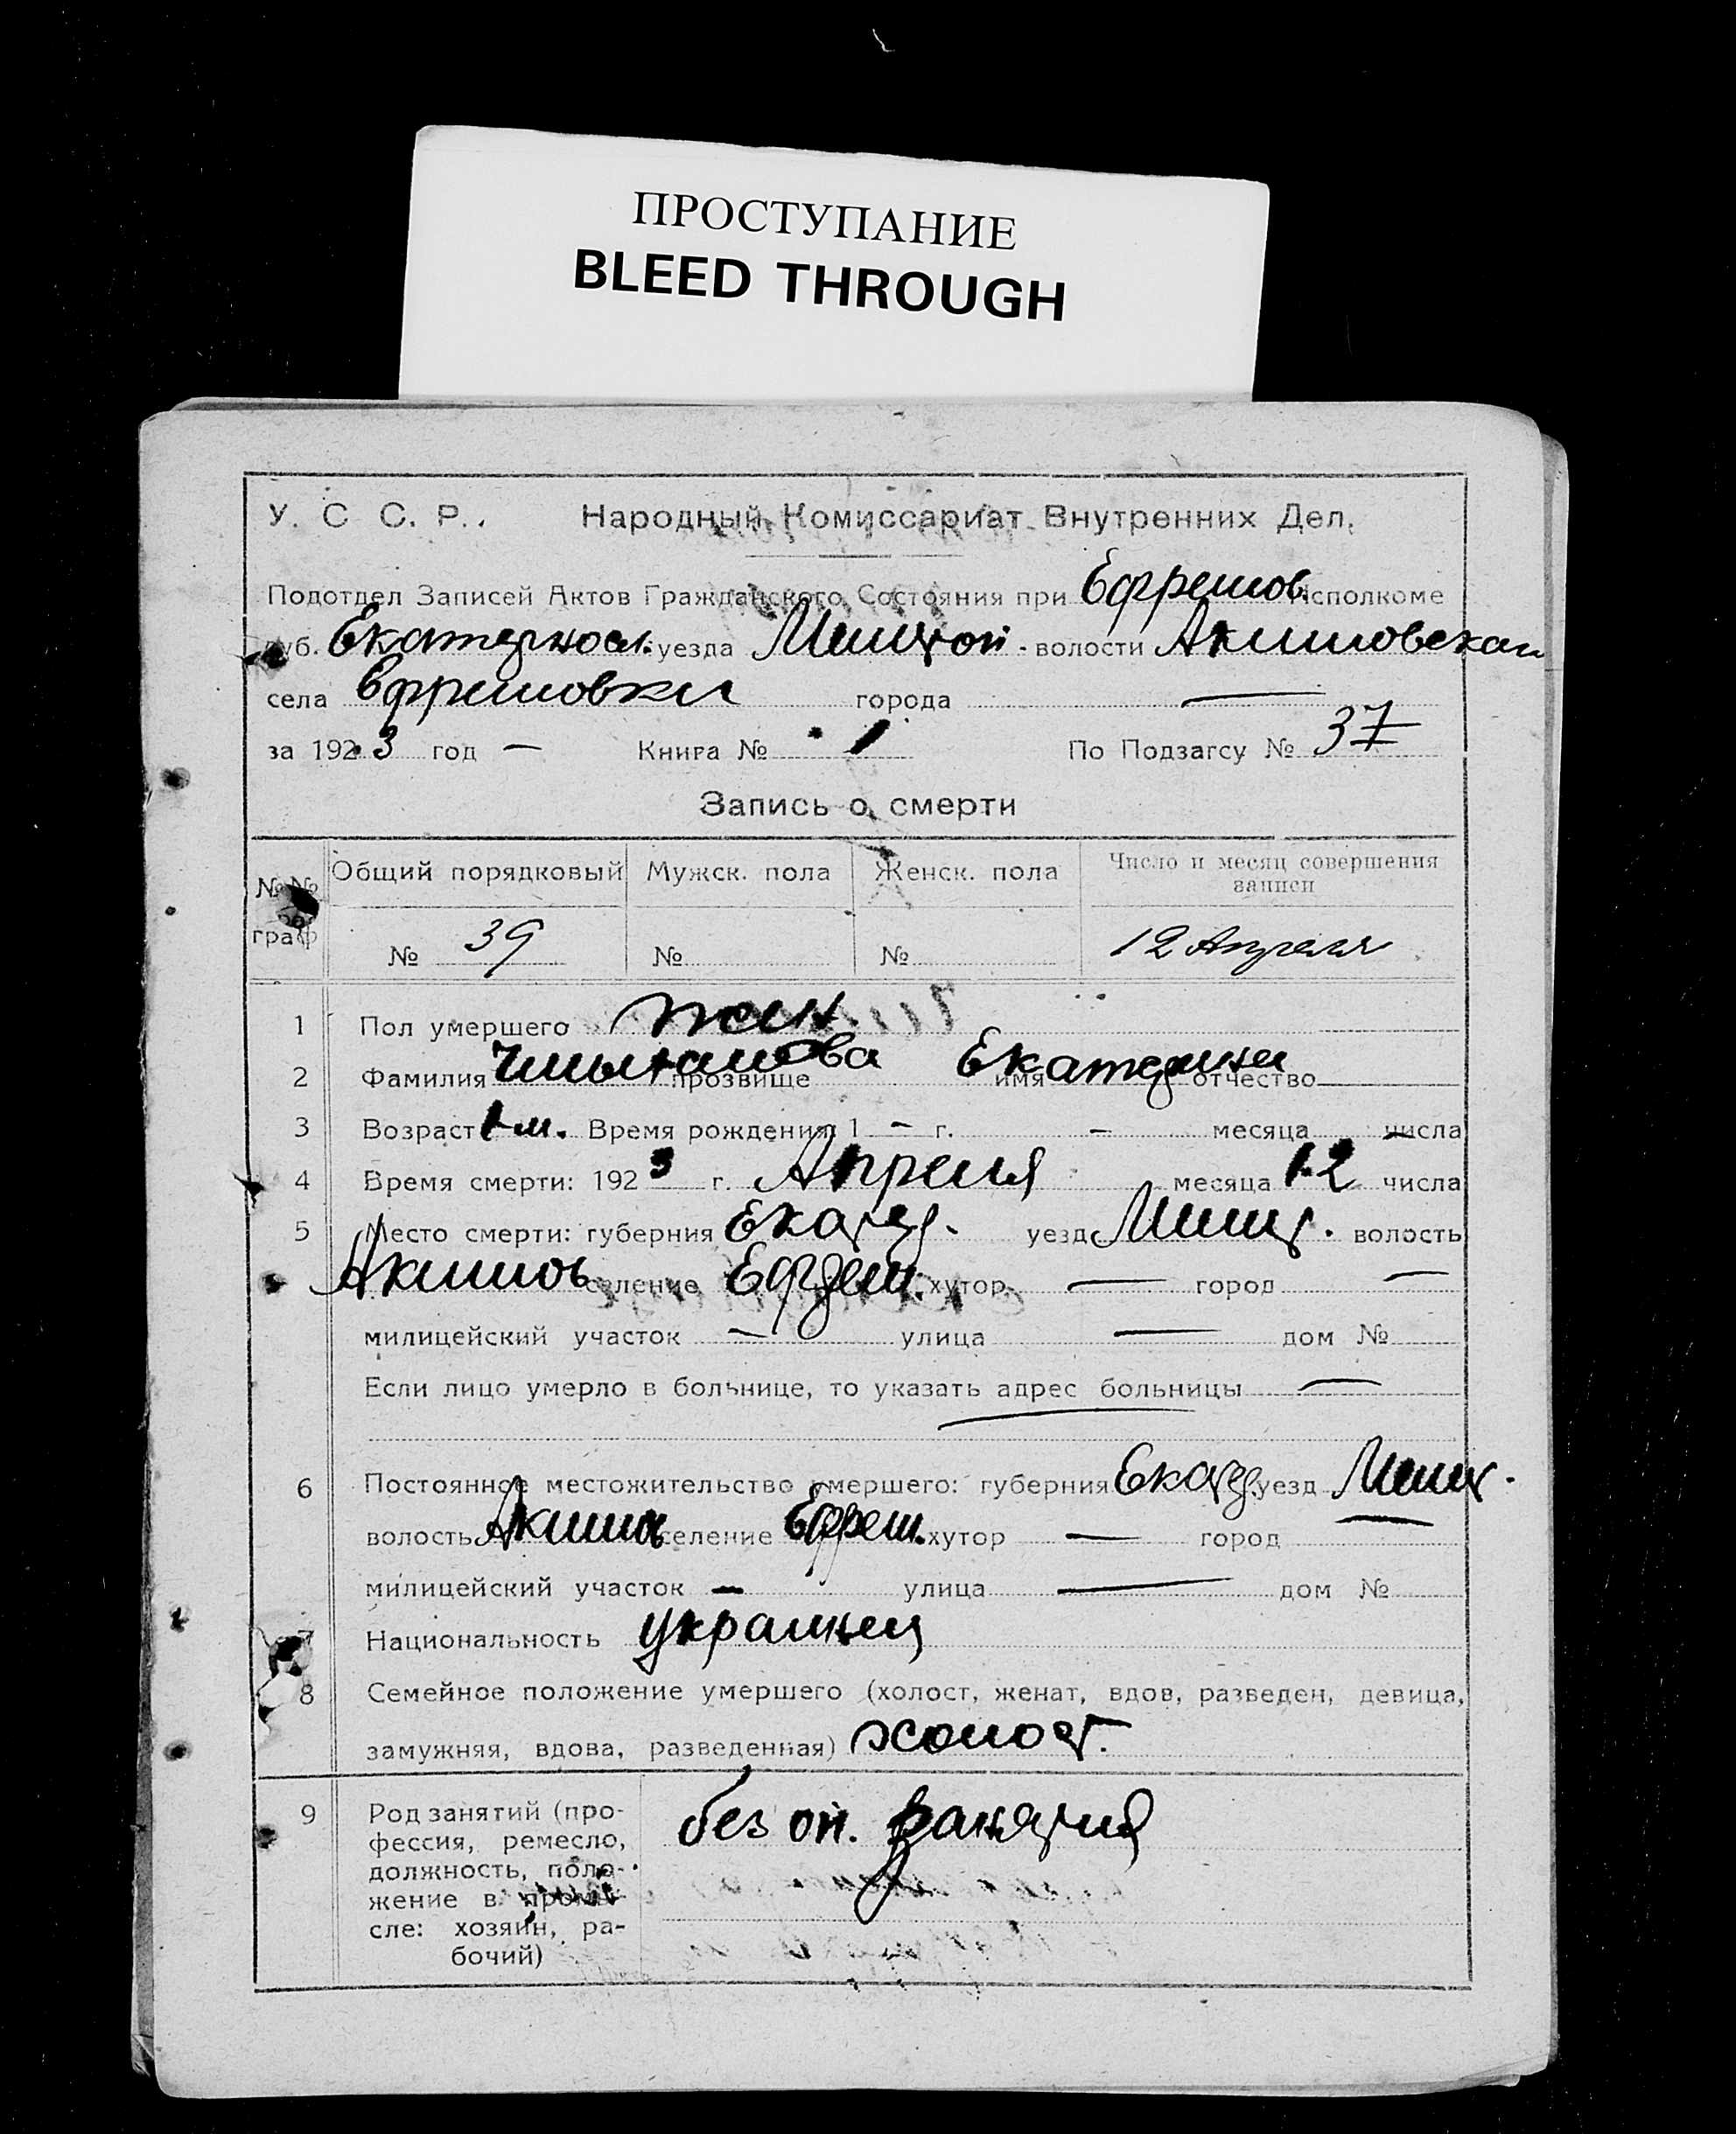 ПРОСТУПАНИЕ
BLEED THROUGH
У. С С. Р.. Народный Комиссариат Внутренних Дел.
Подотдел Записей Актов Гражданского Состояния при Ефремов Исполкоме
губ. Екатериносл. уезда волости Акимовской
села Ефремовки города —
за 1923 год — Книга № 1 По Подзагсу № 37
Запись о смерти
№№ граф Общий порядковый Мужск. пола Женск. пола Число и месяц совершения записи
№ 39 № № 12 Апреля
1 Пол умершего жен.
2 Фамилия прозвище имя Екатерина отчество
3 Возраст 1 м. Время рождения: 1 — г. — месяца — числа
4 Время смерти: 1923 г. Апреля месяца 12 числа
5 Место смерти: губерния Екатер. уезд Мелит. волость
Акимов селение Ефрем. хутор — город —
милицейский участок — улица — дом №
Если лицо умерло в больнице, то указать адрес больницы —
6 Постоянное местожительство умершего: губерния Екатер. уезд Мелит.
волость Акимов селение Ефрем. хутор — город —
милицейский участок — улица — дом №
7 Национальность украинец
8 Семейное положение умершего (холост, женат, вдов, разведен, девица,
замужняя, вдова, разведенная) холост.
9 Род занятий (про- без оп. занятия
фессия, ремесло,
должность, поло-
жение в промы-
сле: хозяин, ра-
бочий)